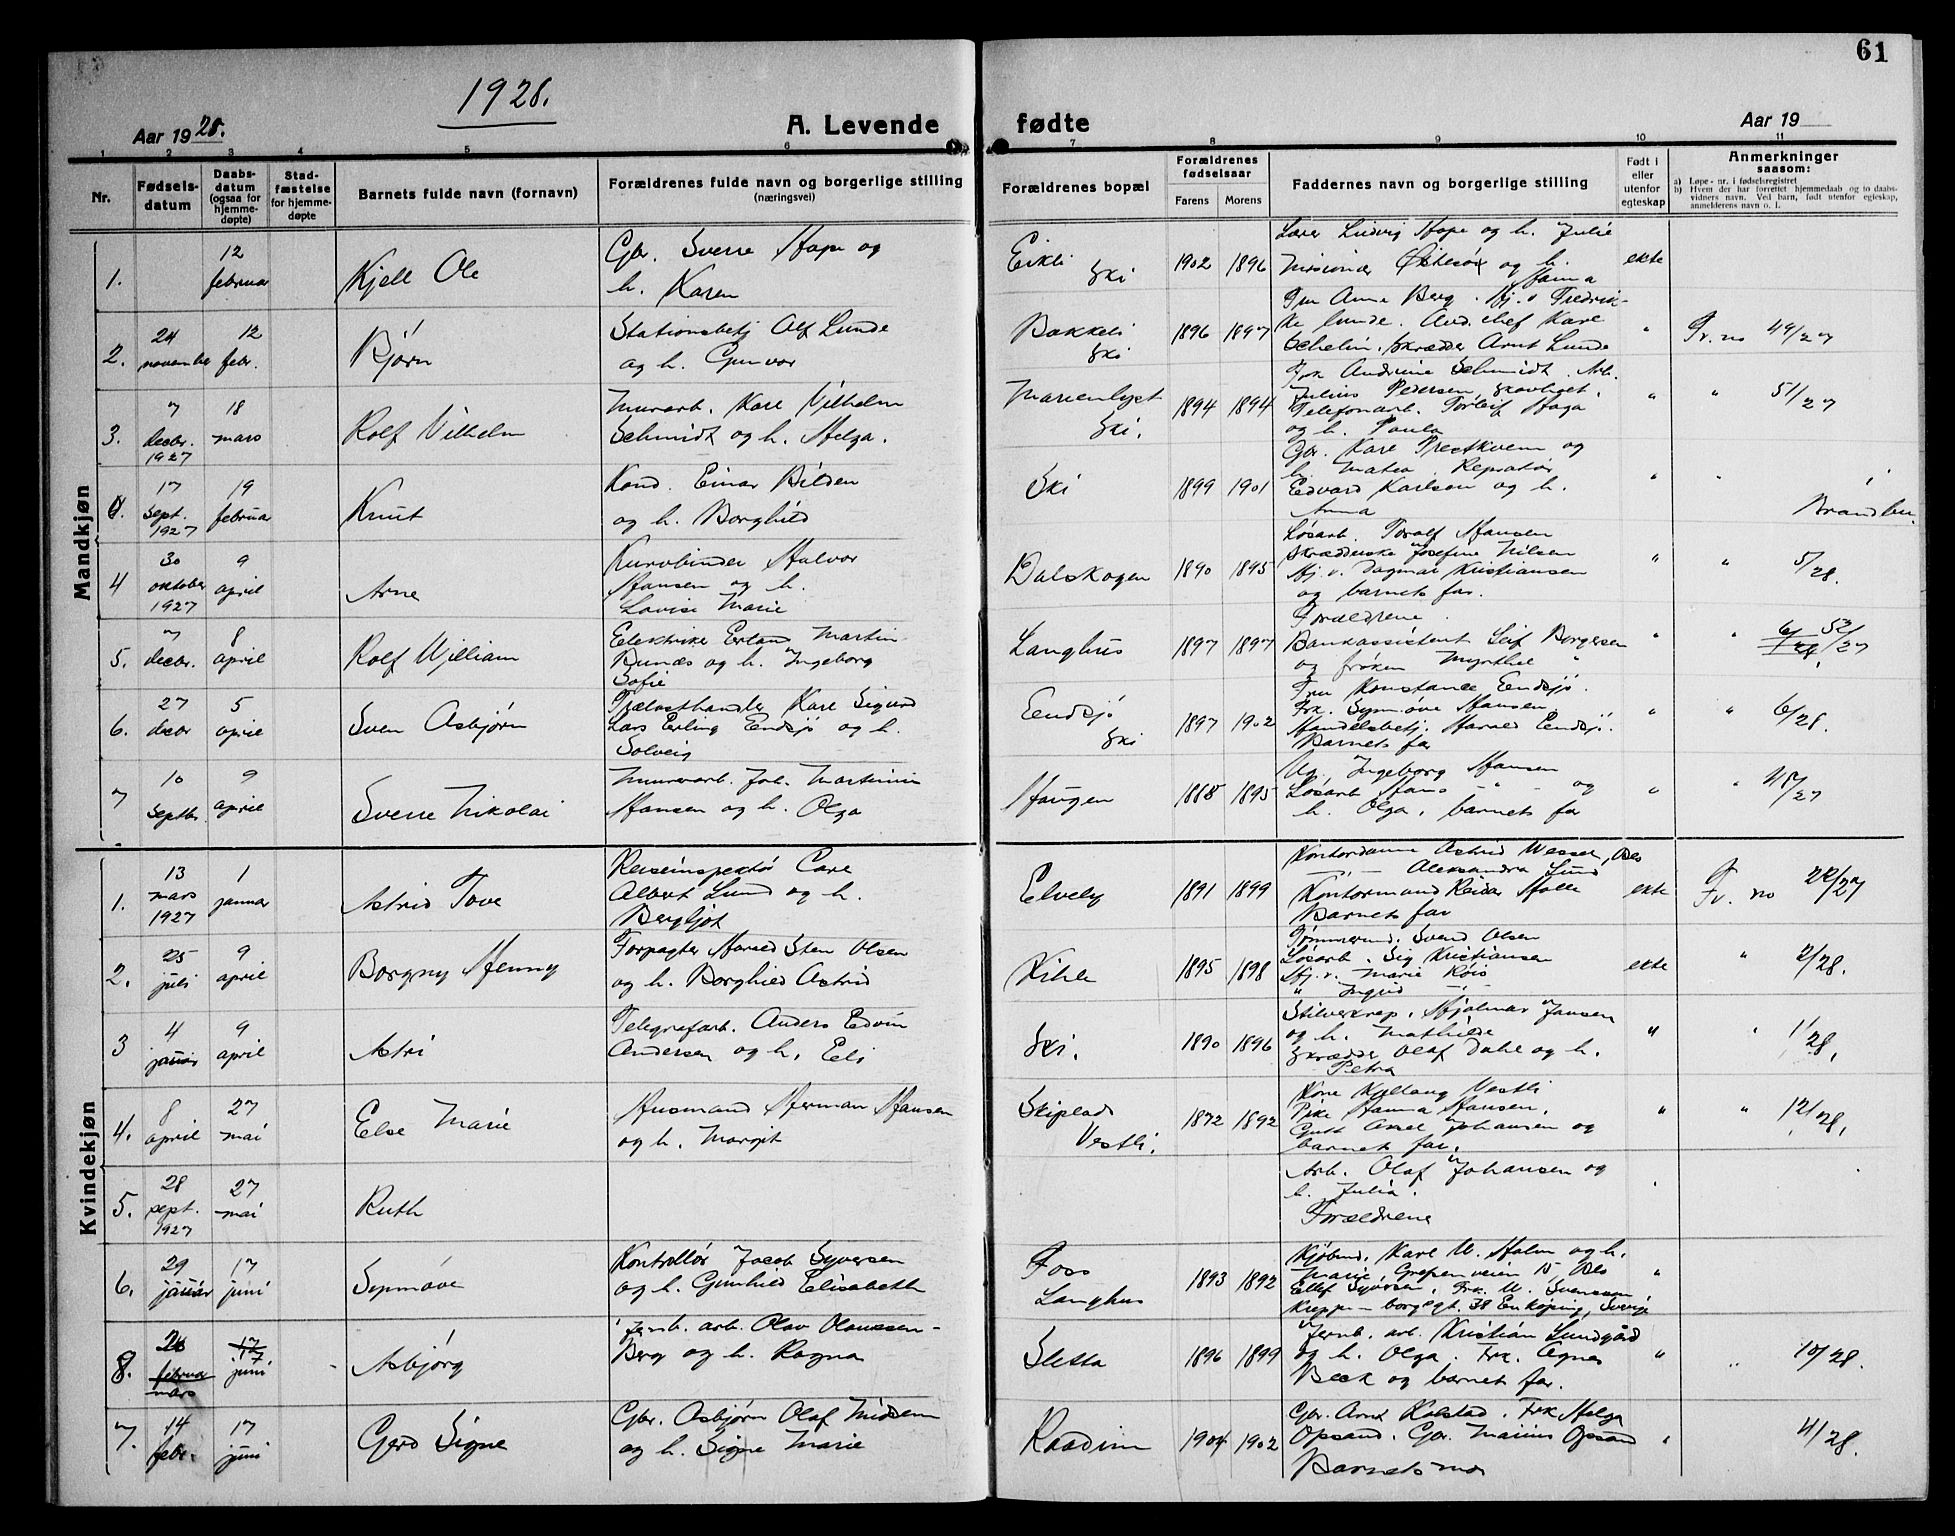 61
1928.
Aar 1928.
A. Levende fødte
Aar 19
1 2 3 4 5 6 7 8 9 10 11
Nr.
Fødsels-
datum
Daabs-
datum
(ogsaa for
hjemme-
døpte)
Stad-
fæstelse
for hjemme-
døpte
Barnets fulde navn (fornavn)
Forældrenes fulde navn og borgerlige stilling
(næringsvei)
Forældrenes bopæl
Forældrenes
fødselsaar
Farens Morens
Faddernes navn og borgerlige stilling
Født i
eller
utenfor
egteskap
Anmerkninger
saasom:
a) Løpe-nr. i fødselsregistret
b) Hvem der har forrettet hjemmedaab og to daabs-
vidners navn. Ved barn, født utenfor egteskap,
anmelderens navn o. l.
Mandkjøn
1.
12
februar
Kjell Ole
Gbr. Sverre Hope og
h. Karen
Eikli
Ski
1902 1896
Lærer Ludvig Hope og h. Julie
Misionær og h.
Hanna
ekte
2.
24
november
12
febr.
Bjørn
Stationsbetj Alf Lunde
og h. Gunvor
Bakkeli
Ski
1896 1897
Fru Anna Berg. Hj.v Fredrik-
ke Lunde. And. chef Karl
Schelin. Skrædder Arnt Lunde
"
Fr. no 49/27
3.
7
decbr.
1927
18
mars
Rolf Vilhelm
Murarb. Karl Vilhelm
Schmidt og h. Helga.
Marienlyst
Ski.
1894 1894
Frk Andrine Schmidt. Arb.
Julius Pedersen, Skovlivet.
Telefonarb. Torleif Haga
og h. Paula
"
" 51/27
17
sept.
1927
19
februar
Knut
Kond. Einar Bilden
og h. Borghild
Ski
1899 1901
Gbr. Karl Prestkvern og
h. Matea. Repratør
Edvard Karlsen og h.
Anna
"
"
4
30
oktober
1927
9
april
Arne
Kurvbinder Halvor
Hansen og h.
Lovise Marie
Dalskogen
1890 1895
Løsarb. Toralf Hansen
Skrædderske Josefine Nilsen
Hj. v. Dagmar Kristiansen
og barnets far.
"
" 5/28.
5.
7
decbr.
8
april
Rolf William
Elektriker Erland Martin
Runæs og h. Ingeborg
Sofie
Langhus
1897 1897
Forældrene.
Bankassistent Leif Borgersen
og frøken Myrthel "
"
" 52/27
6.
27
decbr
5
april
Sven Asbjørn
Trælasthandler Karl Sigurd
Lars Erling Endsjø og h.
Solveig
Endsjø
Ski
1897 1902
Fru Konstance Eendsjø.
Frk. Synnøve Hansen,
Handelsbetj. Harald Eendsjø.
Barnets far
"
" 6/28.
7
10
septbr
9
april
Sverre Nikolai
Murerarb. Joh. Martinius
Hansen og h. Olga
Haugen
1888 1895
Ug. Ingeborg Hansen
Løsarb Hans - " - og
h. Olga, barnets far
"
" 45/27
Kvindekjøn
1.
13
mars
1927
1
januar
Astrid Tove
Reiseinspektør Carl
Albert Lund og h.
Bergljot
Elveby
1891 1899
Kontordame Astrid Wessel, Oslo
Aleksandra Lund
Kontormand Reidar Holte
Barnets far
ekte
Fr. no 22/27
2.
25
juli
9
april
Borgny Henny
Forpagter Harald Sten Olsen
og h. Borghild Astrid
Kihle
1895 1898
Tømmermd. Svend Olsen
Løsarb. Sig Kristiansen
Hj. v. Marie Røis
" Ingrid - " -
ekte
" 2/28.
3
4
januar
9
april
Astri
Telegrafarb. Anders Edvin
Andersen og h. Eli
Ski.
1890 1896
Hjalmar Jansen
og h. Mathilde
Skrædder Olaf Dahl og h.
Petra
"
" 1/28,
4.
8
april
27
mai
Else Marie
Husmand Herman Hansen
og h. Margit
Skiplads
Vestli.
1872 1892
Kone Vestli
Pike Hanna Hansen,
Gutt Aksel Johansen og
barnets far.
"
" 12/28,
5.
28
sept.
1927
27
mai
Ruth
Arb. Olaf Johansen og
h. Julia.
Forældrene
6.
29
januar
17
juni
Synnøve
Kontrollør Jacob Syversen
og h. Gunhild Elisabeth
Foss
Langhus
1893 1892
Kjøbmd. Karl M. Holm og h.
Marie, Grefsenveien 15 Oslo
Ellef Syversen, Frk. M. Svensson
38 Enköping, Sverige
"
8.
26
februar
mars
17
17
juni
Asbjørg
Jernb. arb. Olav Olaussen-
Berg og h. Ragna
Sletta
1896 1899
Jernb. arb. Kristian Lundgård
og h. Olga. Frk. Agnes
Beck og barnet far.
"
" 10/28.
7.
14
febr.
17
juni
Gerd Signe
Gbr. Asbjørn Olaf Midsem
og h. Signe Marie
Raadim
1904 1902
Gbr. Arnt Kolstad. Frk Helga
Opsand. Gbr. Marius Opsand
Barnets mor
"
4/28.